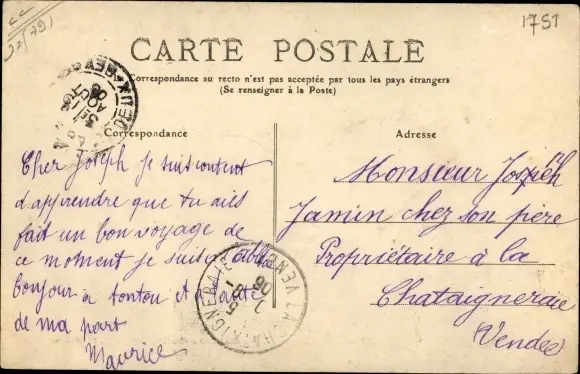 1751
(79)
CARTE POSTALE
Correspondance au recto n'est pas acceptée par tous les pays étrangers
(Se renseigner à la Poste)
Correspondance
Adresse
Cher Joseph je suis content
d'apprendre que tu ais
fait un bon voyage de
ce moment je suis à
bonjour à tonton et à tante
de ma part
Maurice
Monsieur Joseph
Jamin chez son père
Propriétaire à la
Chataigneraie
(Vendée)
LA CHATAIGNERAIE VENDEE